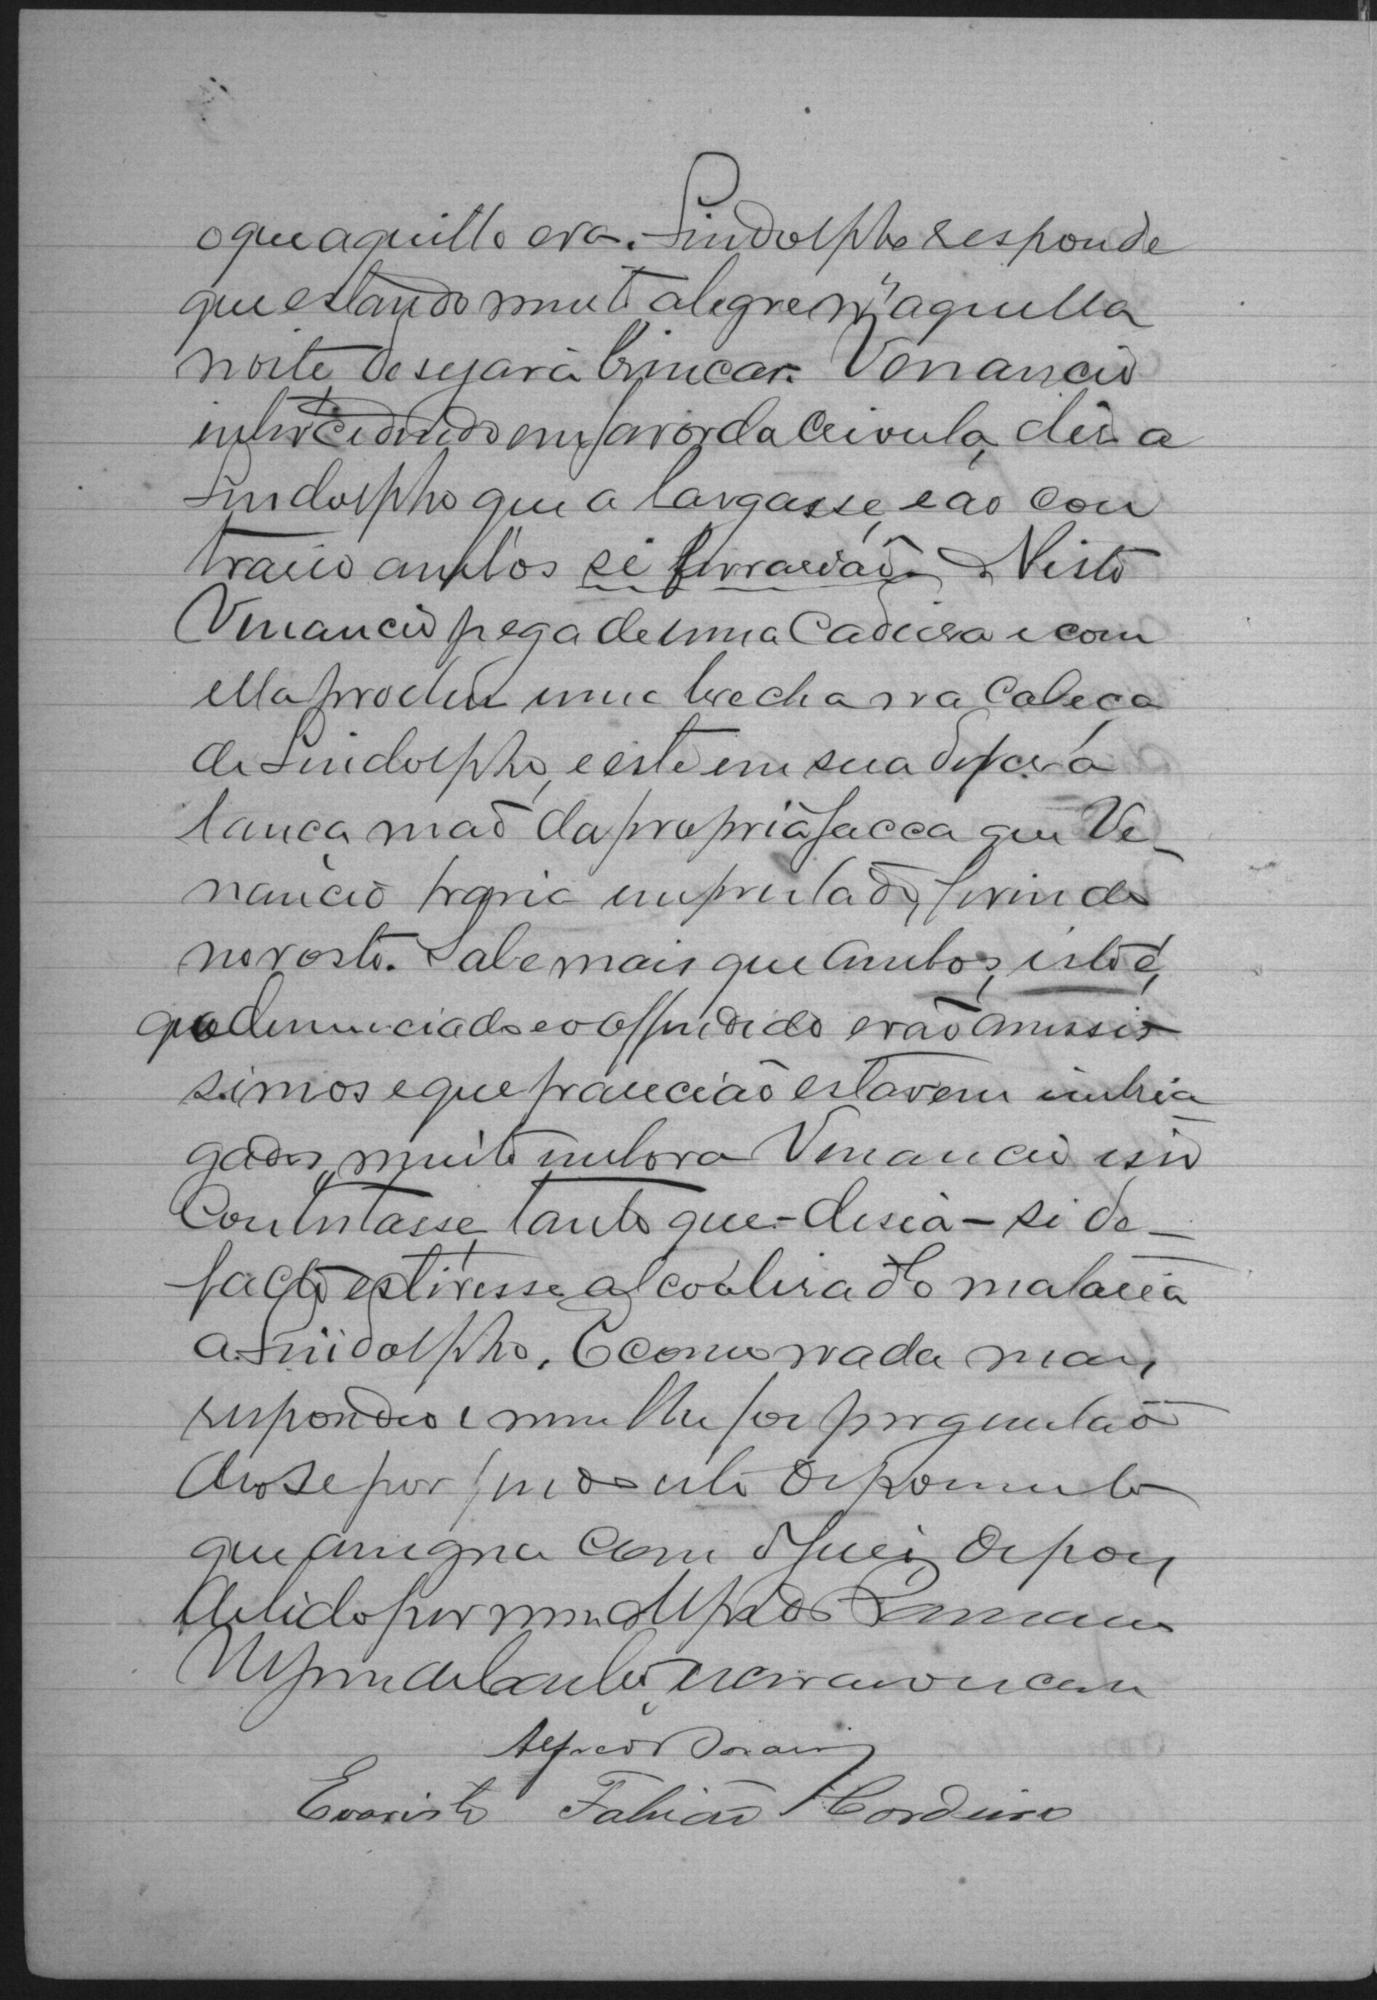 o que aquillo era. Lindolpho responde
que estando muito alegre n'aquella
noite, desejara brincar. Venancio
intercedendo em favor da Crioula, diz a
Lindolpho que a largasse, e ao con
trario ambos se furrarião. Nisto
Venancio pega de uma Cadeira e com
ella produz uma brecha na Cabeça
de Lindolpho, e este em sua defesa
lança mão da propria facca que Ve-
nancio trazia empunhada, ferindo
no rosto. Sabe mais que ambos, isto é,
que o denunciado e o offendido erão amissis
simos e que parecião estarem embria
gados, muito embora Venancio isso
Contestasse, tanto que - disia - si de
facto estivesse alcoolisado mataria
a Lindolpho. E como nada mais
respondeo e nem lhe foi perguntado
deo-se por findo este depoimento
que assigna com o Juiz, depois
de lido por mim Alfredo
escrivão o escrevi
Alfredo
Evaristo Fabião Cordeiro